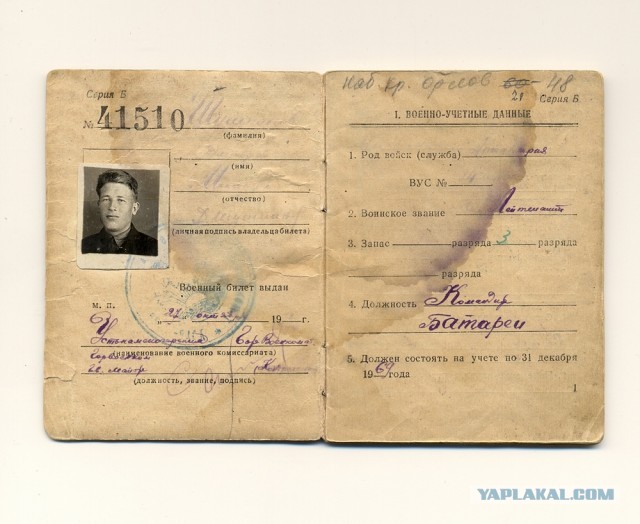 Серия Б
№ 41510
(фамилия)
(имя)
(отчество)
(личная подпись владельца билета)
Военный билет выдан
м. п.
27 октября 19 г.
Устькаменогорским Гор Военкомат
(наименование военного комиссариата)
(должность, звание, подпись)
наб. кр. орлов 60 - 48
21
Серия Б
1. ВОЕННО-УЧЕТНЫЕ ДАННЫЕ
1. Род войск (служба)
ВУС №
2. Воинское звание Лейтенант
3. Запас разряда 3 разряда
разряда
4. Должность Командир
Батареи
5. Должен состоять на учете по 31 декабря
1969 года
1
YAPLAKAL.COM